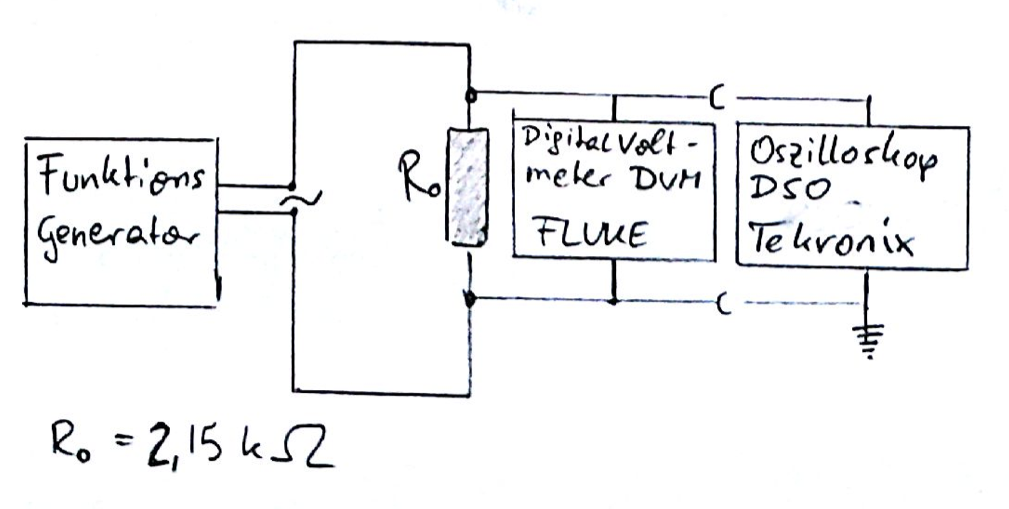 Funktions
Generator
~
R₀
Digital Volt-
meter DVM
FLUKE
Oszilloskop
DSO
Tekronix
R₀ = 2,15 kΩ